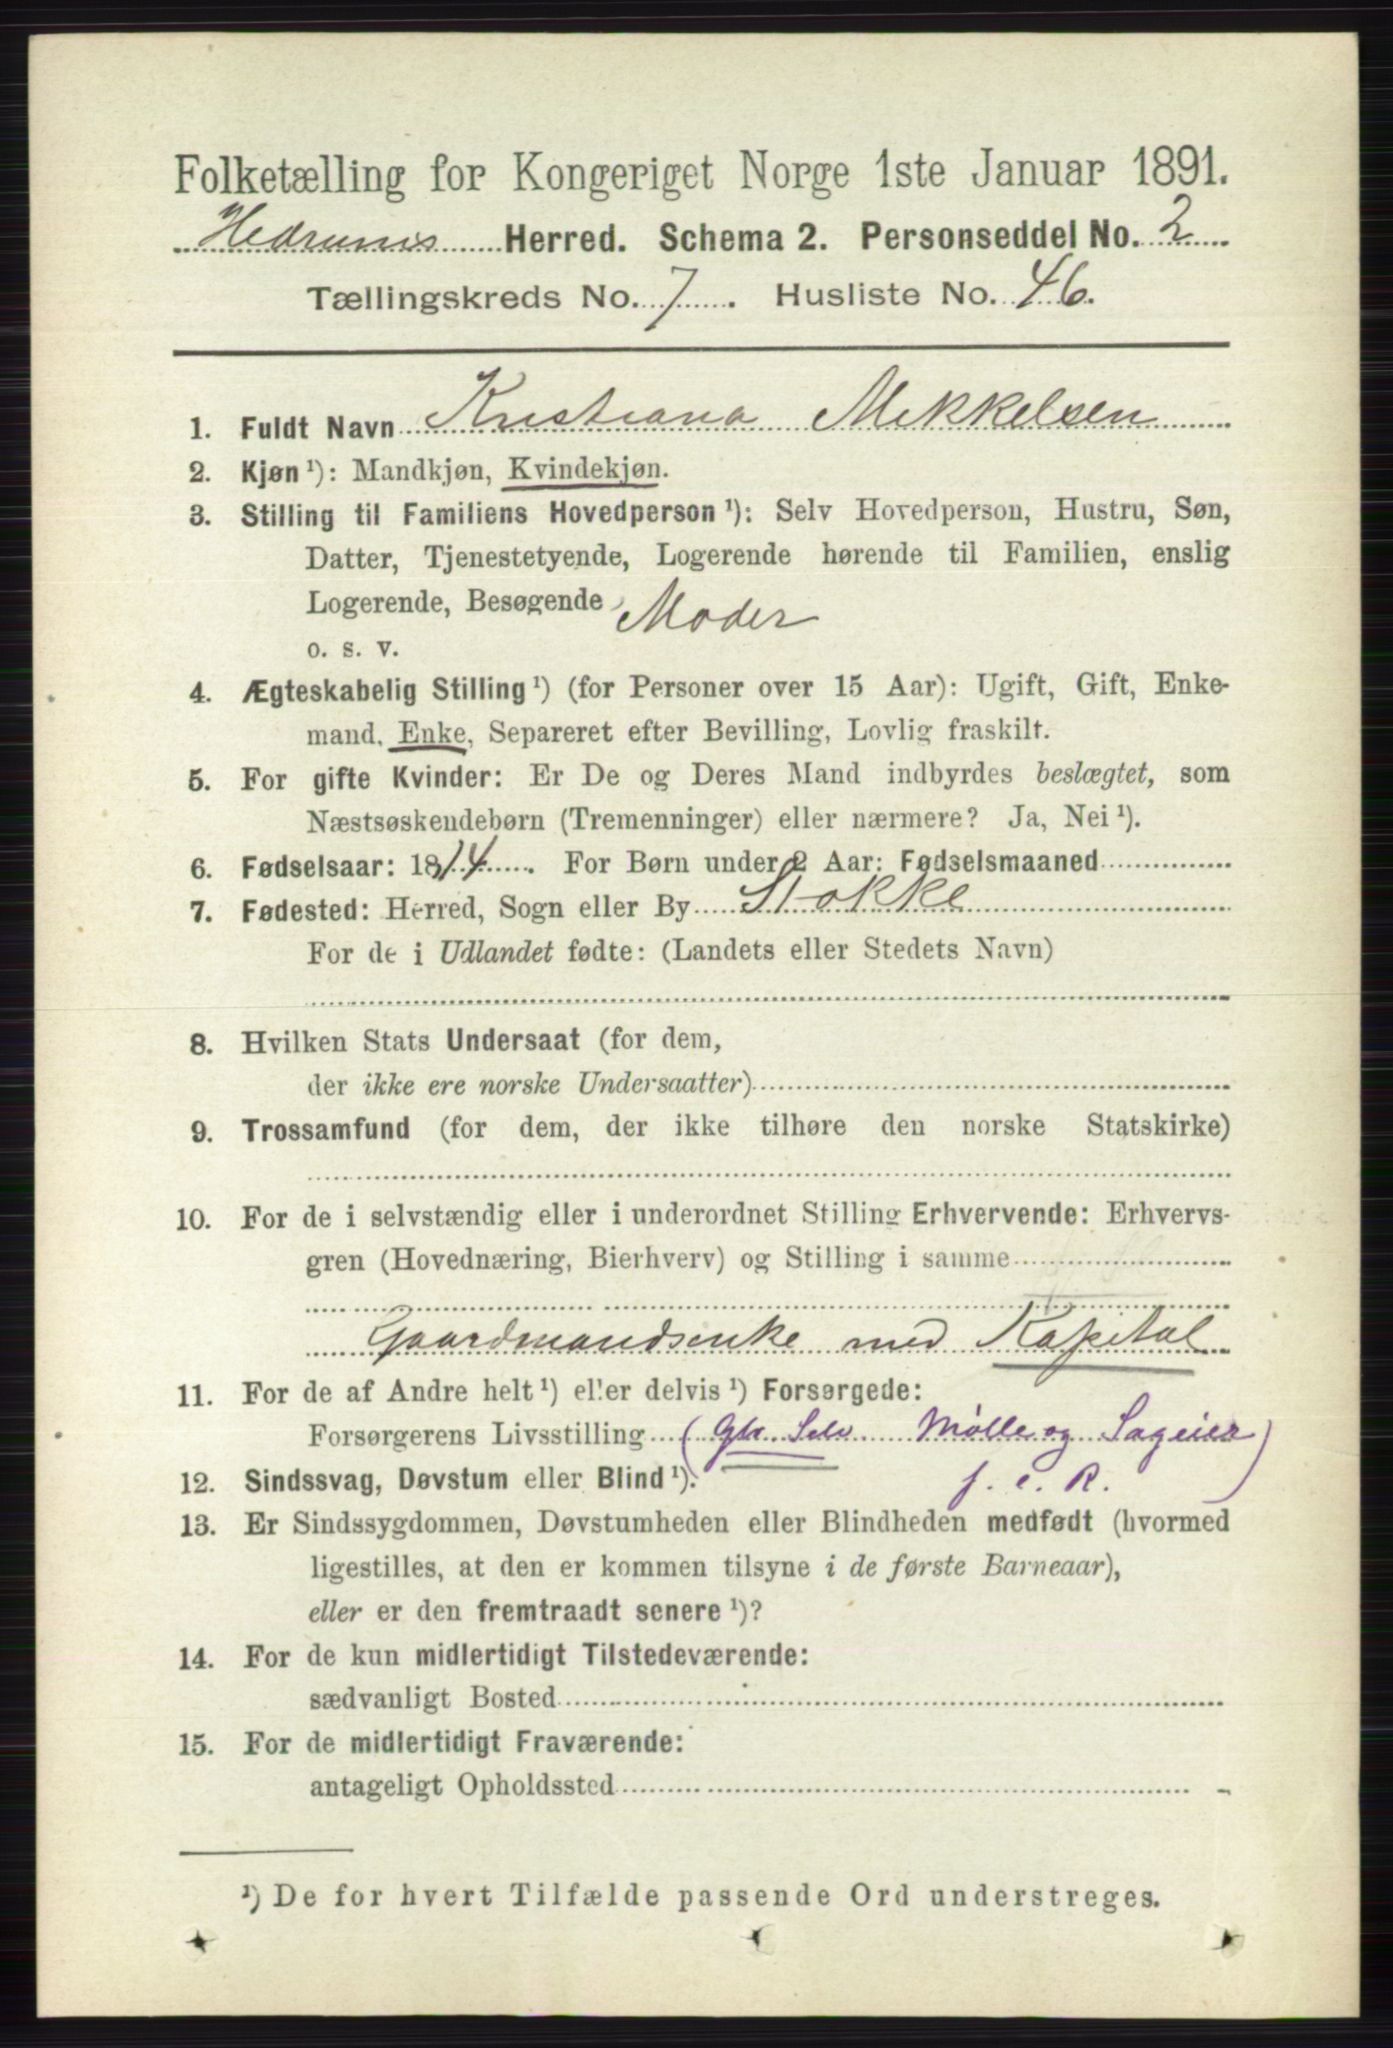 Folketælling for Kongeriget Norge 1ste Januar 1891.
Hedrums Herred. Schema 2. Personseddel No. 2
Tællingskreds No. 7. Husliste No. 46.
1. Fuldt Navn Kristiana Mekkelsen
2. Kjøn ¹): Mandkjøn, Kvindekjøn.
3. Stilling til Familiens Hovedperson ¹): Selv Hovedperson, Hustru, Søn,
Datter, Tjenestetyende, Logerende hørende til Familien, enslig
Logerende, Besøgende Moder
o. s. v.
4. Ægteskabelig Stilling ¹) (for Personer over 15 Aar): Ugift, Gift, Enke-
mand, Enke, Separeret efter Bevilling, Lovlig fraskilt.
5. For gifte Kvinder: Er De og Deres Mand indbyrdes beslægtet, som
Næstsøskendebørn (Tremenninger) eller nærmere? Ja, Nei ¹).
6. Fødselsaar: 1814. For Børn under 2 Aar: Fødselsmaaned
7. Fødested: Herred, Sogn eller By Stokke
For de i Udlandet fødte: (Landets eller Stedets Navn)
8. Hvilken Stats Undersaat (for dem,
der ikke ere norske Undersaatter)
9. Trossamfund (for dem, der ikke tilhøre den norske Statskirke)
10. For de i selvstændig eller i underordnet Stilling Erhvervende: Erhvervs-
gren (Hovednæring, Bierhverv) og Stilling i samme
Gaardmandsenke med Kapital
11. For de af Andre helt ¹) eller delvis ¹) Forsørgede:
Forsørgerens Livsstilling (Gbr. Selv Mølle og Sageier)
12. Sindssvag, Døvstum eller Blind ¹). f. e. R.
13. Er Sindssygdommen, Døvstumheden eller Blindheden medfødt (hvormed
ligestilles, at den er kommen tilsyne i de første Barneaar),
eller er den fremtraadt senere ¹)?
14. For de kun midlertidigt Tilstedeværende:
sædvanligt Bosted
15. For de midlertidigt Fraværende:
antageligt Opholdssted
¹) De for hvert Tilfælde passende Ord understreges.